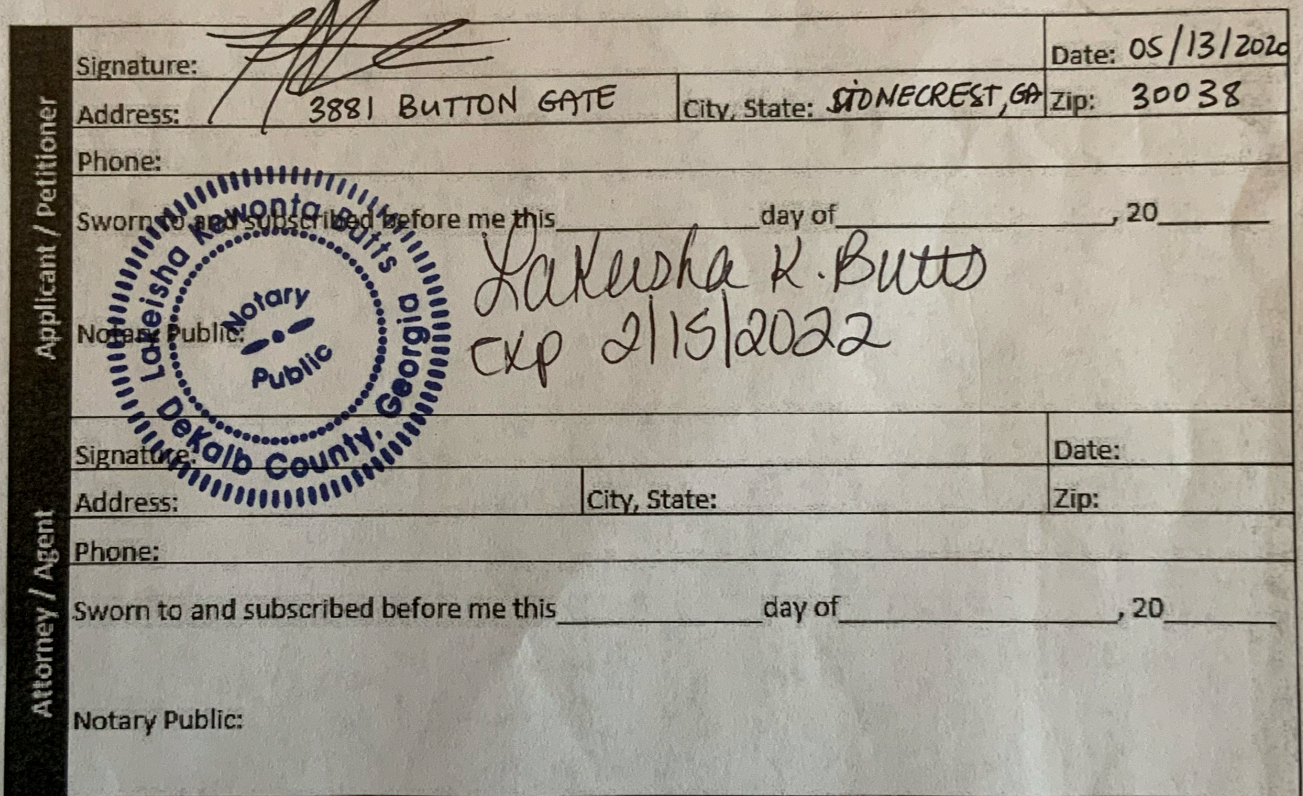 Applicant / Petitioner
Signature: Date: 05/13/2020
Address: 3881 BUTTON GATE City, State: STONECREST, GA Zip: 30038
Phone:
Sworn to and subscribed before me this____day of____, 20____
Lakeisha K. Butts
Notary Public: exp 2/15/2022
Lakeisha Kewonta Butts
Notary
Public
DeKalb County, Georgia
Attorney / Agent
Signature: Date:
Address: City, State: Zip:
Phone:
Sworn to and subscribed before me this____day of____, 20____
Notary Public: